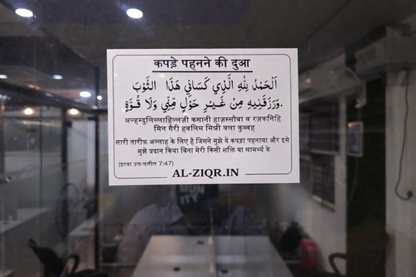 कपड़े पहनने की दुआ
اَلْحَمْدُ لِلّٰهِ الَّذِي كَسَانِي هَذَا الثَّوْبَ
وَرَزَقَنِيهِ مِنْ غَيْرِ حَوْلٍ مِنِّي وَلَا قُوَّةٍ.
अल्हम्दुलिल्लाहिल्लज़ी कसानी हाज़स्सौबा व रज़कनिहि
मिन गैरी हवलिम मिन्नी वला कुव्वह
सारी तारीफ़ अल्लाह के लिए है जिसने मुझे ये कपड़ा पहनाया और इसे
मुझे प्रदान किया बिना मेरी किसी शक्ति या सामर्थ्य के
(इरवा उल-ग़लील 7:47)
AL-ZIQR.IN